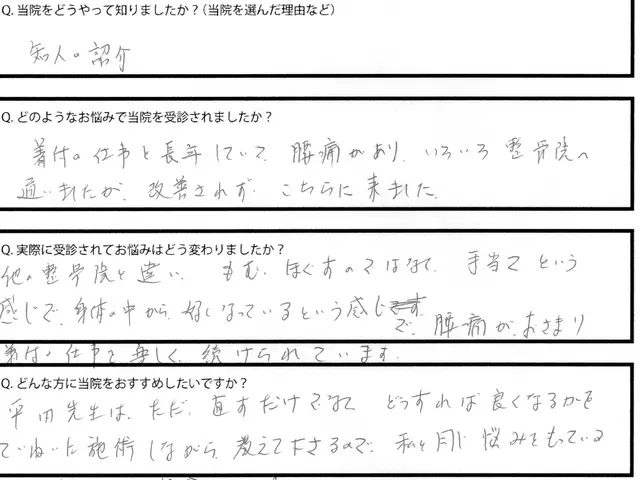 Q. 当院をどうやって知りましたか？（当院を選んだ理由など）
知人の認介
Q. どのようなお悩みで当院を受診されましたか？
着付の仕事を長年していて、腰痛があり、いろいろ整骨院へ
通いましたが、改善されず、こちらに来ました。
Q. 実際に受診されてお悩みはどう変わりましたか？
他の整骨院と違い、もむ、ほぐすのではなくて、手当てという
感じで、身体の中から、好くなっているという感じ
で、腰痛が、おさまり
着付の仕事も無しく、続けられています。
Q. どんな方に当院をおすすめしたいですか？
平田先生は、ただ、直すだけでなくて どうすれば良くなるかを
ていねいに施術しながら、教えて下さるので、私と同じ悩みをもっている